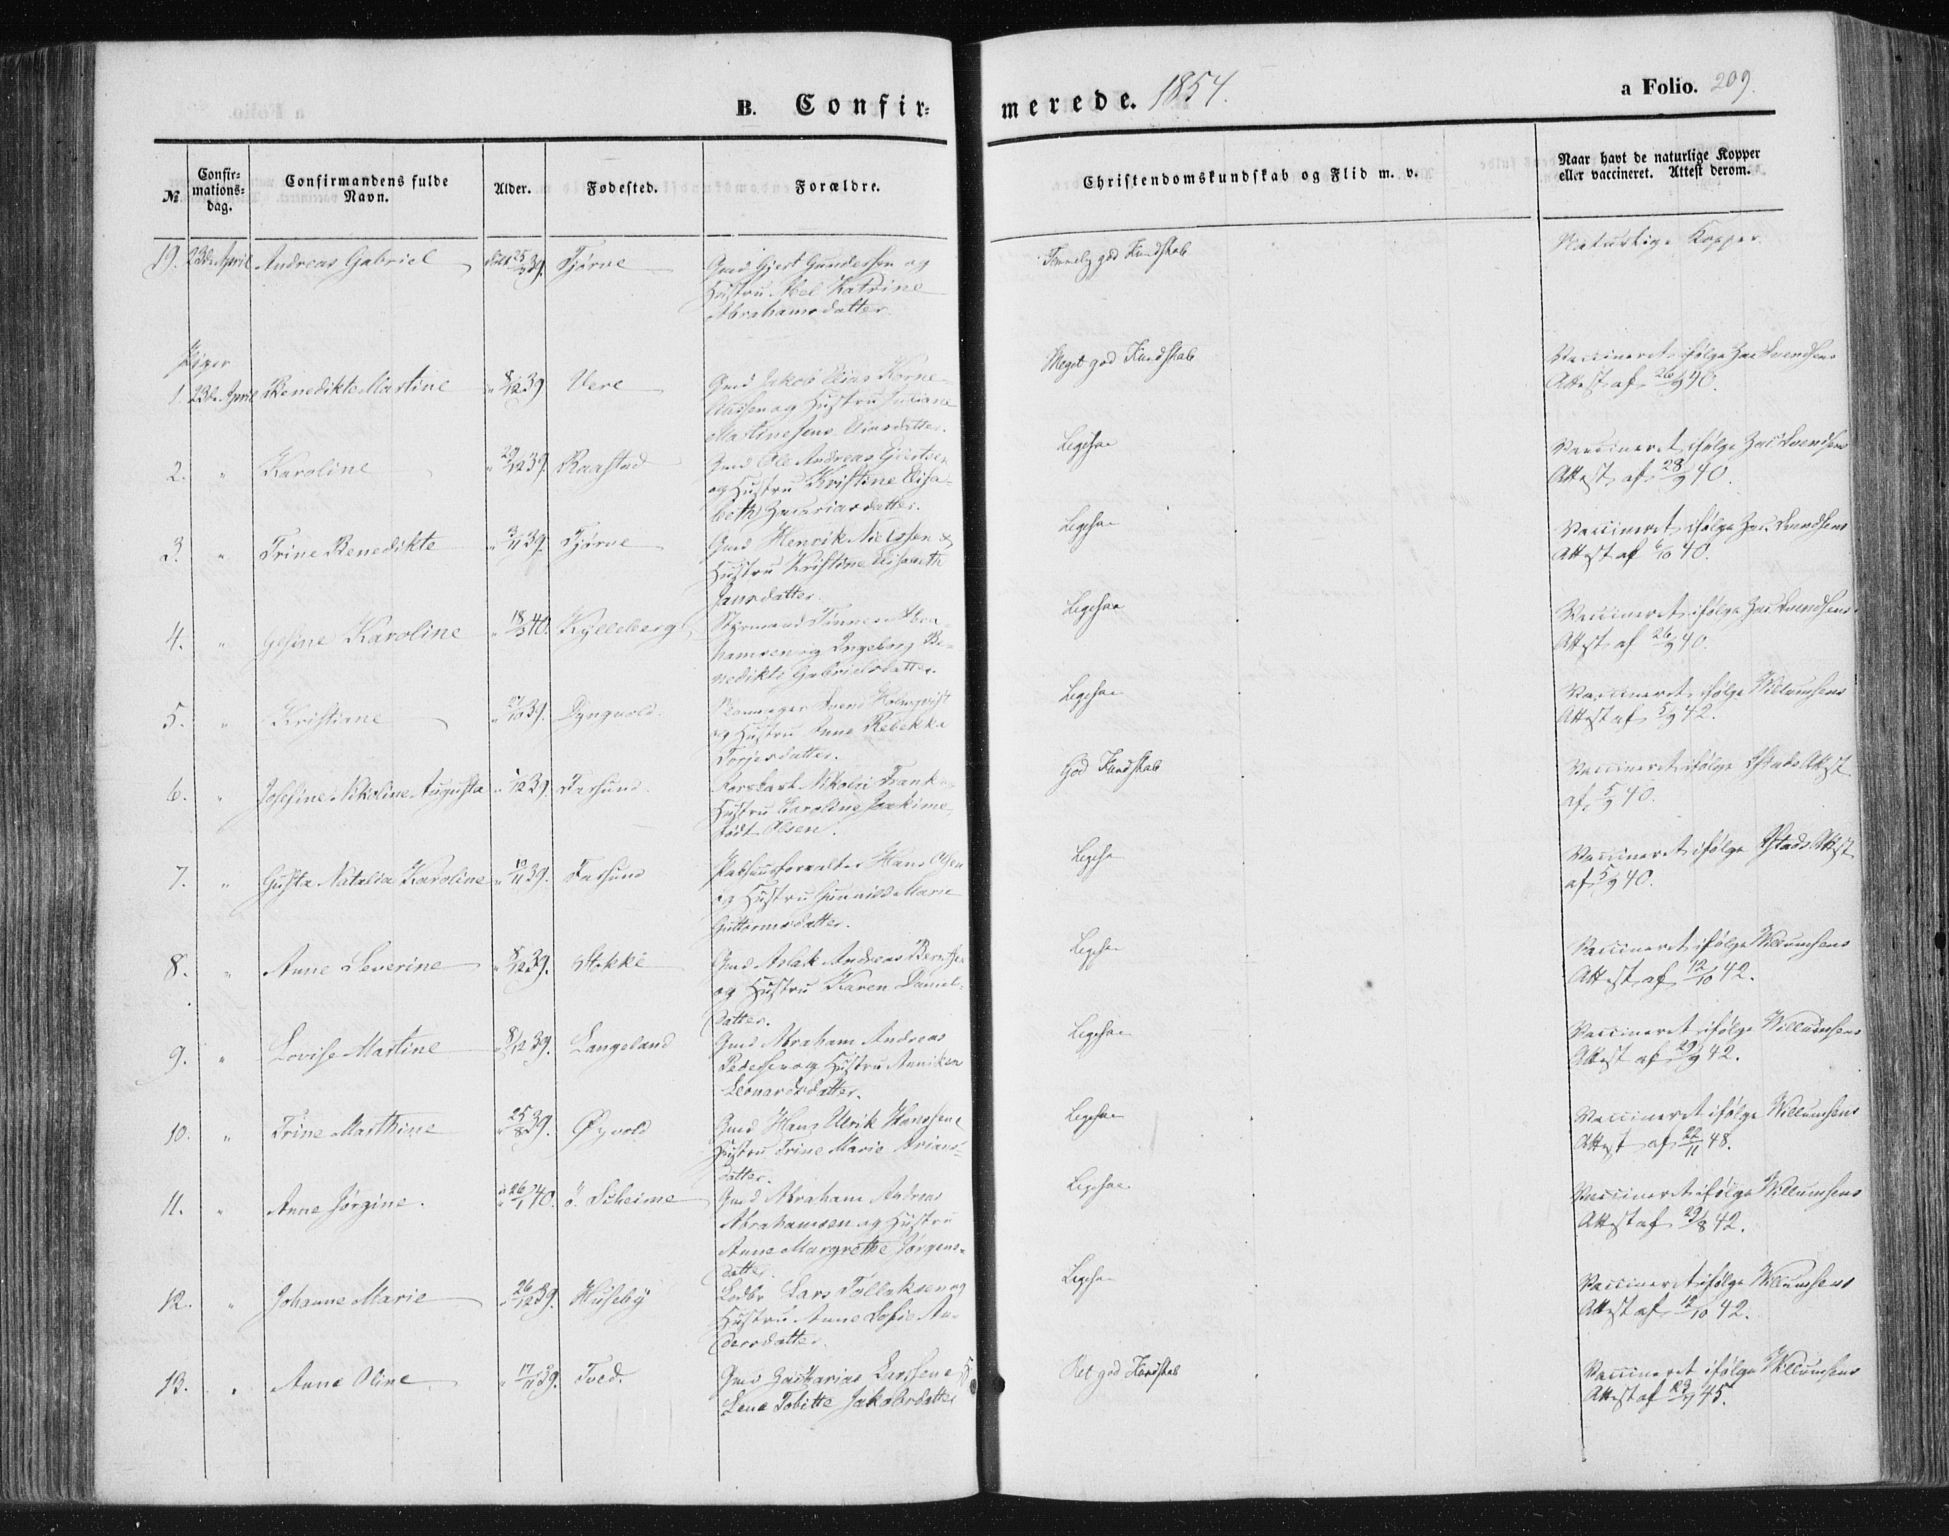 B. Confir-
merede. 1854.
a Folio. 209.
№
Confir-
mations-
dag.
Confirmandens fulde
Navn.
Alder.
Fødested.
Forældre.
Christendomskundskab og Flid m. v.
Naar havt de naturlige Kopper
eller vaccineret. Attest derom.
19. 23de April Andreas Gabriel 39. Tjørve
Gmd Gjert Gundersen og
Hustru Abel Katrine
Abrahamsdatter
Temlig god Kundskab
Naturlige Kopper.
Piger
1. 23de April Benedikte Martine " 8/12 39. Vere
Gmd Jakob Elias Korne-
liussen og Hustru Juliane
Martine Elisdatter.
Meget god Kundskab
Vaccineret ifølge Zac Svendsens
Attest af 26/9 40.
2. " Karoline " 29/12 39. Raastad
Gmd Ole Andreas Gjertsen
og Hustru Kristine Elisa-
beth Zacariasdatter.
Ligesaa
Vaccineret ifølge Zac Svendsens
Attest af 28/9 40.
3. " Trine Benedikte " 3/11 39. Tjørve
Gmd Henrik Nielssen &
Hustru Kristine Elisabeth
Jansdatter.
Ligesaa
Vaccineret ifølge Zac Svendsens
Attest af 6/10 40.
4. " Gesine Karoline " 18/3 40. Kylleberg
Styrmand Tønnes Abra-
hamsen og Ingeborg Be-
nedikte Gabrielsdatter.
Ligesaa
Vaccineret ifølge Zac Svendsens
Attest af 26/9 40.
5. " Kristiane 39. Dyngvold.
Svend Holmqvist
og Hustru Anne Rebekka
Torjersdatter.
Ligesaa
Vaccineret ifølge Willumsens
Attest af 5/9 42.
6. " Josefine Nikoline Augusta 39. Farsund.
Nikolai Frank og
Hustru Karoline Joakime
født Olsen.
God Kundskab
Vaccineret ifølge Attest
af 5/9 40.
7. " Gusta Natalia Karoline " 19/11 39. Farsund
Pakhuusforvalter Hans Olsen
og Hustru Gunnild Marie
Guttormsdatter.
Ligesaa
Vaccineret ifølge Attest
af 5/9 40.
8. " Anne Severine " 8/12 39. Stokke
Gmd Aslak Andreas Berntsen
og Hustru Karen Daniel-
datter.
Ligesaa
Vaccineret ifølge Willumsens
Attest af 12/10 42.
9. " Lovise Martine " 8/12 39. Langeland
Gmd Abraham Andreas
Pedersen og Hustru Anniken
Leonardsdatter.
Ligesaa
Vaccineret ifølge Willumsens
Attest af 29/9 42.
10. " Trine Marthine " 25/8 39. Øyvold
Gmd Hans Ulrik Hanssen &
Hustru Trine Marie Arians-
datter.
Ligesaa
Vaccineret ifølge Willumsens
Attest af 22/11 48.
11. " Anne Jørgine. " 26/1 40. ö. Skeime
Gmd Abraham Andreas
Abrahamsen og Hustru
Anne Margrethe Jørgens-
datter.
Ligesaa
Vaccineret ifølge Willumsens
Attest af 29/8 42.
12. " Johanne Marie " 26/12 39. Huseby
Lars Tollaksen og
Hustru Anne Sofie An-
dersdatter.
Ligesaa
Vaccineret ifølge Willumsens
Attest af 12/10 42.
13. " Anne Oline " 17/11 39. Tved.
Gmd Zackarias Larssen & H.
Lena Tobitte Jakobsdatter
Ret god Kundskab
Vaccineret ifølge Willumsens
Attest af 29/9 45.